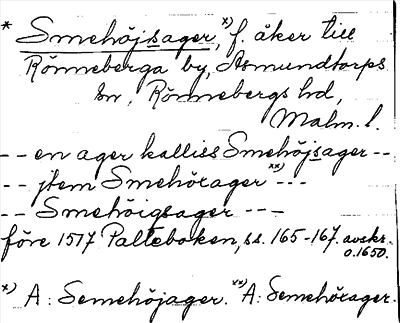 * Smehöjsager, x) f. åker till
Rönneberga by, Asmundtorps
sn, Rönnebergs hd,
Malm. l.
-- en ager kalliss Smehöjsager --
-- jtem Smehöragerxx) ---
-- Smehöigsager ---
före 1517 Palteboken, ss. 165-167. avskr.
o. 1650.
x) A: Semehöjager. xx) A: Semehörager.